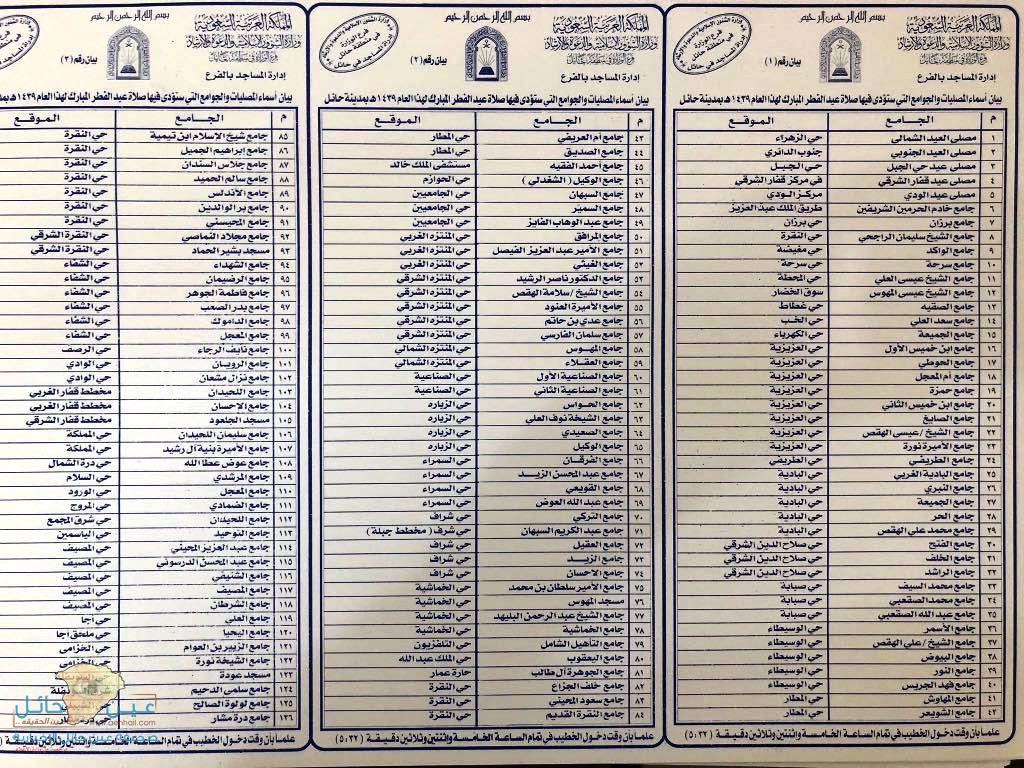 المملكة العربية السعودية
وزارة الشؤون الإسلامية والدعوة والإرشاد
إدارة المساجد بالفرع
بسم الله الرحمن الرحيم
بيان رقم (١)
بيان أسماء المصليات والجوامع التي ستؤدى فيها صلاة عيد الفطر المبارك لهذا العام ١٤٣٩هـ بمدينة حائل
م الجامع الموقع
١ مصلى العيد الشمالي حي الزهراء
٢ مصلى العيد الجنوبي جنوب الدائري
٣ مصلى عيد حي الجبل حي الجبل
٤ مصلى عيد قفار الشرقي في مركز قفار الشرقي
٥ مصلى عيد الودي مركز الودي
٦ جامع خادم الحرمين الشريفين طريق الملك عبد العزيز
٧ جامع برزان حي برزان
٨ جامع الشيخ سليمان الراجحي حي النقرة
٩ جامع الوائكد حي مغيضة
١٠ جامع سرحة حي سرحة
١١ جامع الشيخ عيسى العلي حي المحطة
١٢ جامع الشيخ عيسى المهوس سوق الخضار
١٣ جامع الصقيه حي عطاط
١٤ جامع سعد العلي حي الخب
١٥ جامع الجميعة حي الكهرباء
١٦ جامع ابن خميس الأول حي العزيزية
١٧ جامع الحوطي حي العزيزية
١٨ جامع أم المعجل حي العزيزية
١٩ جامع حمزة حي العزيزية
٢٠ جامع ابن خميس الثاني حي العزيزية
٢١ جامع الصايغ حي العزيزية
٢٢ جامع الشيخ /عيسى الهقص حي العزيزية
٢٣ جامع الأميرة نورة حي العزيزية
٢٤ جامع الطريفي حي الطريفي
٢٥ جامع البادية الغربي حي البادية
٢٦ جامع النبري حي البادية
٢٧ جامع الجميعة حي البادية
٢٨ جامع الحر حي البادية
٢٩ جامع محمد علي الهقص حي البادية
٣٠ جامع الفتح حي صلاح الدين الشرقي
٣١ جامع الخلف حي صلاح الدين الشرقي
٣٢ جامع الراشد حي صلاح الدين الشرقي
٣٣ جامع محمد السيف حي صبابة
٣٤ جامع محمد الصقعبي حي صبابة
٣٥ جامع عبد الله الصقعبي حي صبابة
٣٦ جامع الأسمر حي الوسيطاء
٣٧ جامع الشيخ /علي الهقص حي الوسيطاء
٣٨ جامع البيوض حي الوسيطاء
٣٩ جامع النور حي الوسيطاء
٤٠ جامع فهد الجريس حي الوسيطاء
٤١ جامع المهاوش حي المطار
٤٢ جامع الشويعر حي المطار
علما بأن وقت دخول الخطيب في تمام الساعة الخامسة واثنتين وثلاثين دقيقة (٥:٣٢)
المملكة العربية السعودية
وزارة الشؤون الإسلامية والدعوة والإرشاد
إدارة المساجد بالفرع
بسم الله الرحمن الرحيم
بيان رقم (٢)
بيان أسماء المصليات والجوامع التي ستؤدى فيها صلاة عيد الفطر المبارك لهذا العام ١٤٣٩هـ بمدينة حائل
م الجامع الموقع
٤٣ جامع أم العريفي حي المطار
٤٤ جامع الصديق حي المطار
٤٥ جامع أحمد الفقيه مستشفى الملك خالد
٤٦ جامع الوكيل (الشغدلي) حي الحوازم
٤٧ جامع السبهان حي الجامعيين
٤٨ جامع السمير حي الجامعيين
٤٩ جامع عبد الوهاب الفايز حي الجامعيين
٥٠ جامع المرافق حي المنتزه الغربي
٥١ جامع الأمير عبد العزيز الفيصل حي المنتزه الغربي
٥٢ جامع الغيثي حي المنتزه الغربي
٥٣ جامع الدكتور ناصر الرشيد حي المنتزه الشرقي
٥٤ جامع الشيخ /سلامة الهقص حي المنتزه الشرقي
٥٥ جامع الأميرة العنود حي المنتزه الشرقي
٥٦ جامع عدي بن حاتم حي المنتزه الشرقي
٥٧ جامع سلمان الفارسي حي المنتزه الشرقي
٥٨ جامع المهوس حي المنتزه الشمالي
٥٩ جامع العقلاء حي المنتزه الشمالي
٦٠ جامع الصناعية الأول حي الصناعية
٦١ جامع الصناعية الثاني حي الصناعية
٦٢ جامع الحواس حي الزباره
٦٣ جامع الشيخة نوف العلي حي الزباره
٦٤ جامع الصعيدي حي الزباره
٦٥ جامع الوكيل حي الزباره
٦٦ جامع الفرقان حي السمراء
٦٧ جامع عبد المحسن الزيد حي السمراء
٦٨ جامع القويعي حي السمراء
٦٩ جامع عبد الله العوض حي السمراء
٧٠ جامع التركي حي شراف
٧١ جامع عبد الكريم السبهان حي شرف (مخطط جبلة)
٧٢ جامع العقيل حي شراف
٧٣ جامع الزيد حي شراف
٧٤ جامع الاحسان حي شراف
٧٥ جامع الأمير سلطان بن محمد حي الخماشية
٧٦ مسجد المهوس حي الخماشية
٧٧ جامع الشيخ عبد الرحمن البليهد حي الخماشية
٧٨ جامع الخماشية حي الخماشية
٧٩ جامع التأهيل الشامل حي التلفزيون
٨٠ جامع اليعقوب حي الملك عبد الله
٨١ جامع الجوهرة آل طالب حارة عمار
٨٢ جامع خلف الجزاع حي النقرة
٨٣ جامع سعود المحيني حي النقرة
٨٤ جامع النقرة القديم حي النقرة
علما بأن وقت دخول الخطيب في تمام الساعة الخامسة واثنتين وثلاثين دقيقة (٥:٣٢)
المملكة العربية السعودية
وزارة الشؤون الإسلامية والدعوة والإرشاد
إدارة المساجد بالفرع
بسم الله الرحمن الرحيم
بيان رقم (٣)
بيان أسماء المصليات والجوامع التي ستؤدى فيها صلاة عيد الفطر المبارك لهذا العام ١٤٣٩هـ
م الجامع الموقع
٨٥ جامع شيخ الاسلام ابن تيمية حي النقرة
٨٦ جامع إبراهيم الجميل حي النقرة
٨٧ جامع جلاس السندان حي النقرة
٨٨ جامع سالم الحميد حي النقرة
٨٩ جامع الأندلس حي النقرة
٩٠ جامع بر الوالدين حي النقرة
٩١ جامع المحيسني حي النقرة
٩٢ جامع مجلاد النماصي حي النقرة الشرقي
٩٣ مسجد بشير الحماد حي النقرة الشرقي
٩٤ جامع الشهداء حي الشفاء
٩٥ جامع الرضيمان حي الشفاء
٩٦ جامع فاطمة الجوهر حي الشفاء
٩٧ جامع بدر الصعب حي الشفاء
٩٨ جامع الداموك حي الشفاء
٩٩ جامع المعجل حي الشفاء
١٠٠ جامع نايف الرجاء حي الرصف
١٠١ جامع الرويان حي الوادي
١٠٢ جامع نزال مشعان حي الوادي
١٠٣ جامع اللحيدان مخطط قفار الغربي
١٠٤ جامع الإحسان مخطط قفار الغربي
١٠٥ مسجد الجلعود مخطط قفار الشرقي
١٠٦ جامع سليمان اللحيدان حي المملكة
١٠٧ جامع الأميرة بنية آل رشيد حي المملكة
١٠٨ جامع عوض عطا الله حي درة الشمال
١٠٩ جامع المرشدي حي السلام
١١٠ جامع المعجل حي الورود
١١١ جامع الضمادي حي المروج
١١٢ جامع اللحيدان حي شرق المجمع
١١٣ جامع التوحيد حي الياسمين
١١٤ جامع عبد العزيز المحيني حي المصيف
١١٥ جامع عبد المحسن الدرسوني حي المصيف
١١٦ جامع الشنيفي حي المصيف
١١٧ جامع المصيف حي المصيف
١١٨ جامع الشرطان حي المصيف
١١٩ جامع العلي حي أجا
١٢٠ جامع اليحيا حي ملحق أجا
١٢١ جامع الزبير بن العوام حي الخزامى
١٢٢ جامع الشيخة نورة حي الخزامى
١٢٣ مسجد عودة
١٢٤ جامع سلمى الدحيم
١٢٥ جامع لولوة الصالح
١٢٦ جامع درة مشار
علما بأن وقت دخول الخطيب في تمام الساعة الخامسة واثنتين وثلاثين
عين حائل